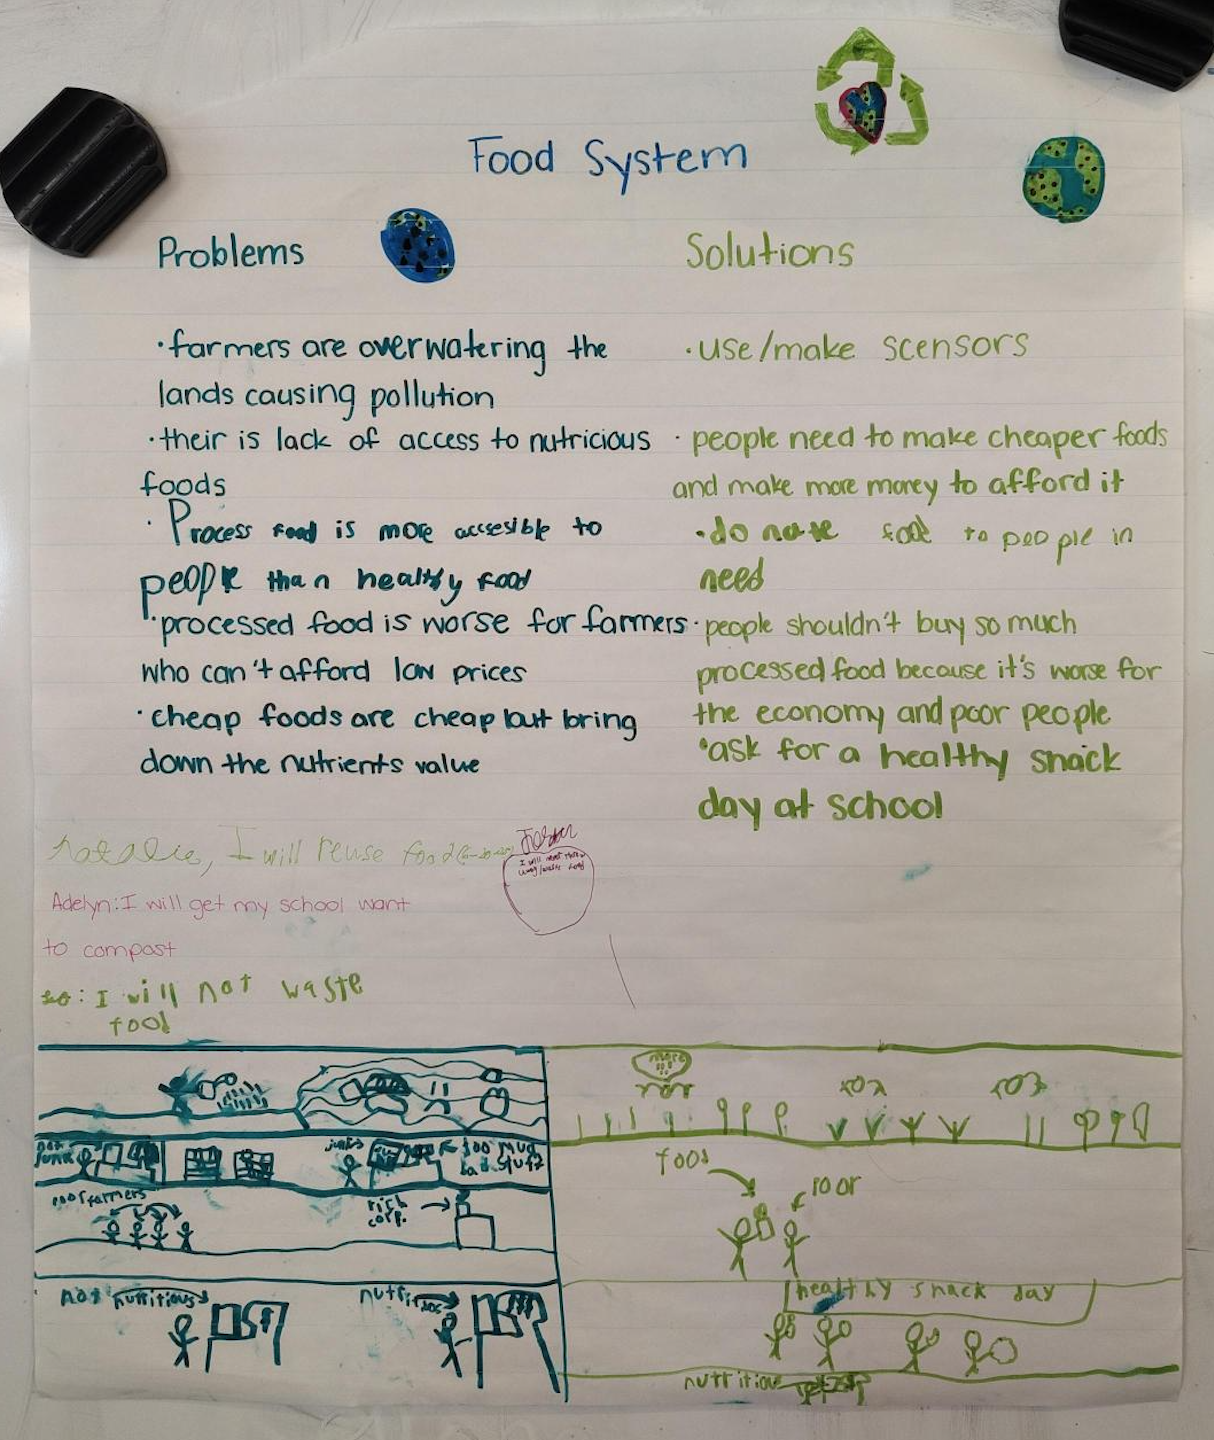 Food System
Problems
Solutions
·farmers are overwatering the
lands causing pollution
·their is lack of access to nutricious
foods
·Process food is more accesible to
people than healthy food
·processed food is worse for farmers
who can't afford low prices
·cheap foods are cheap but bring
down the nutrients value
·use/make scensors
·people need to make cheaper foods
and make more money to afford it
·donate food to people in
need
·people shouldn't buy so much
processed food because it's worse for
the economy and poor people
·ask for a healthy snack
day at school
natalie, I will reuse food
I will
food
Adelyn: I will get my school want
to compost
: I will not waste
food
not
junk
junk
too much
bad stuff
poor farmers
rich
corp.
not nutritious
food
poor
healthy snack day